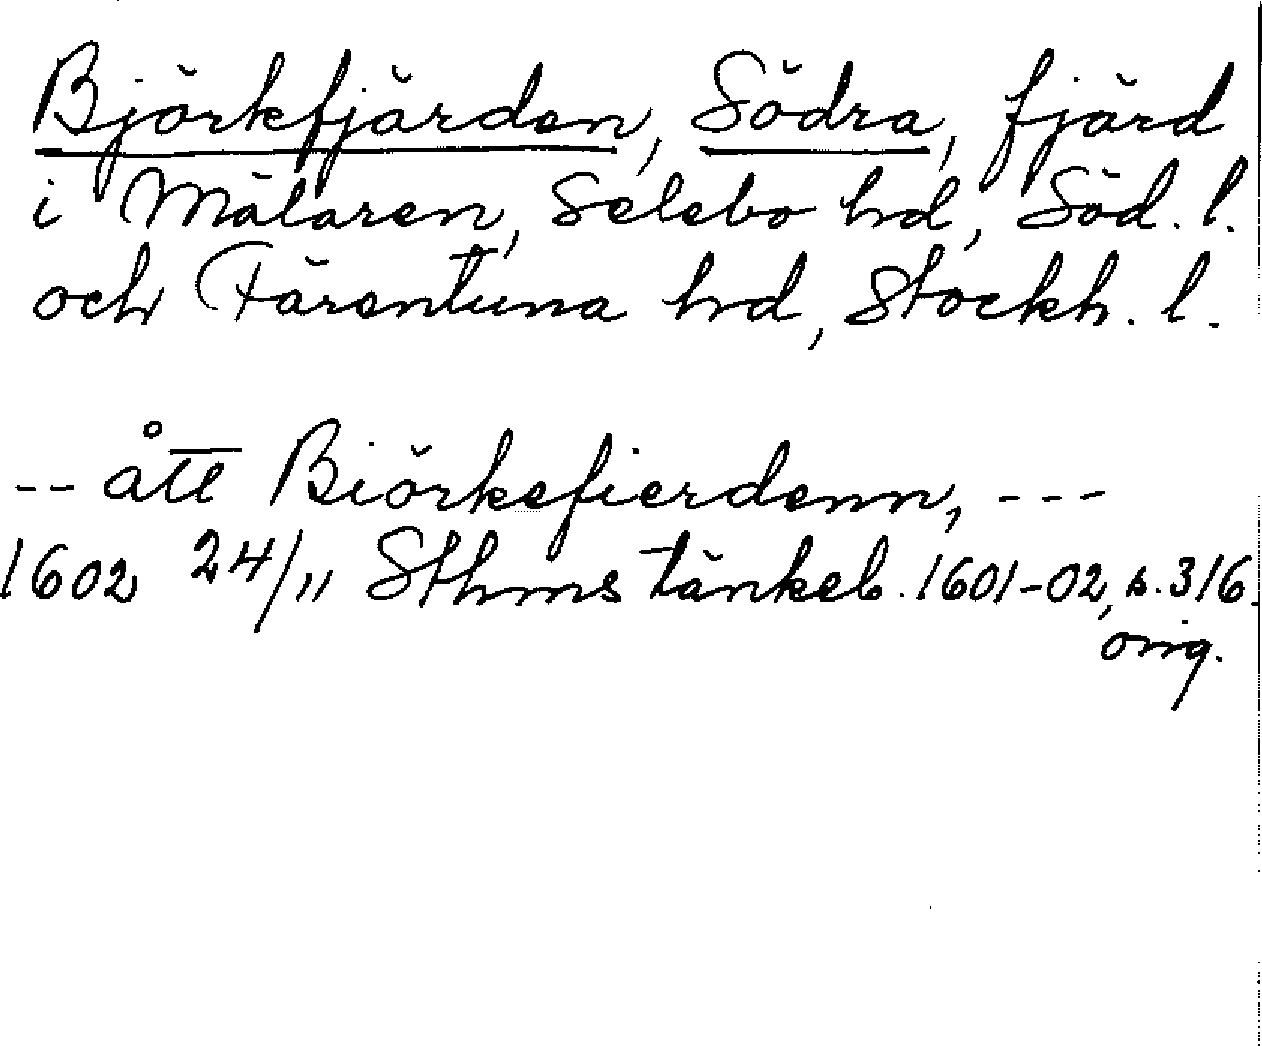 Björkfjärden, Södra, fjärd
i Mälaren, Selebo hd, Söd. l.
och Färentuna hd, Stockh. l.
--ått Biörkefierdenn, ---
1602 24/11 Sthms tänkeb. 1601-02, s. 316.
orig.